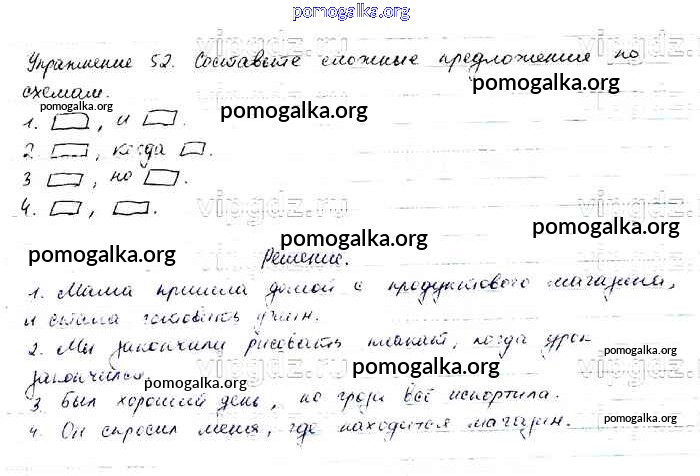 pomogalka.org
Упражнение 52. Составьте сложные предложения по
vipgdz.ru
схемам.
pomogalka.org
pomogalka.org
pomogalka.org
1. , и .
2. , когда .
3 , но .
4. , .
vipgdz.ru
vipgdz.ru
pomogalka.org
pomogalka.org
pomogalka.org
Решение.
1. Мама пришла домой с продуктового магазина,
и стала готовить ужин.
2. Мы закончили рисовать плакат, когда урок
pomogalka.org
закончился.
pomogalka.org
pomogalka.org
3. Был хороший день, но гроза всё испортила.
pomogalka.org
4. Он спросил меня, где находится магазин.
vipgdz.ru
vipgdz.ru